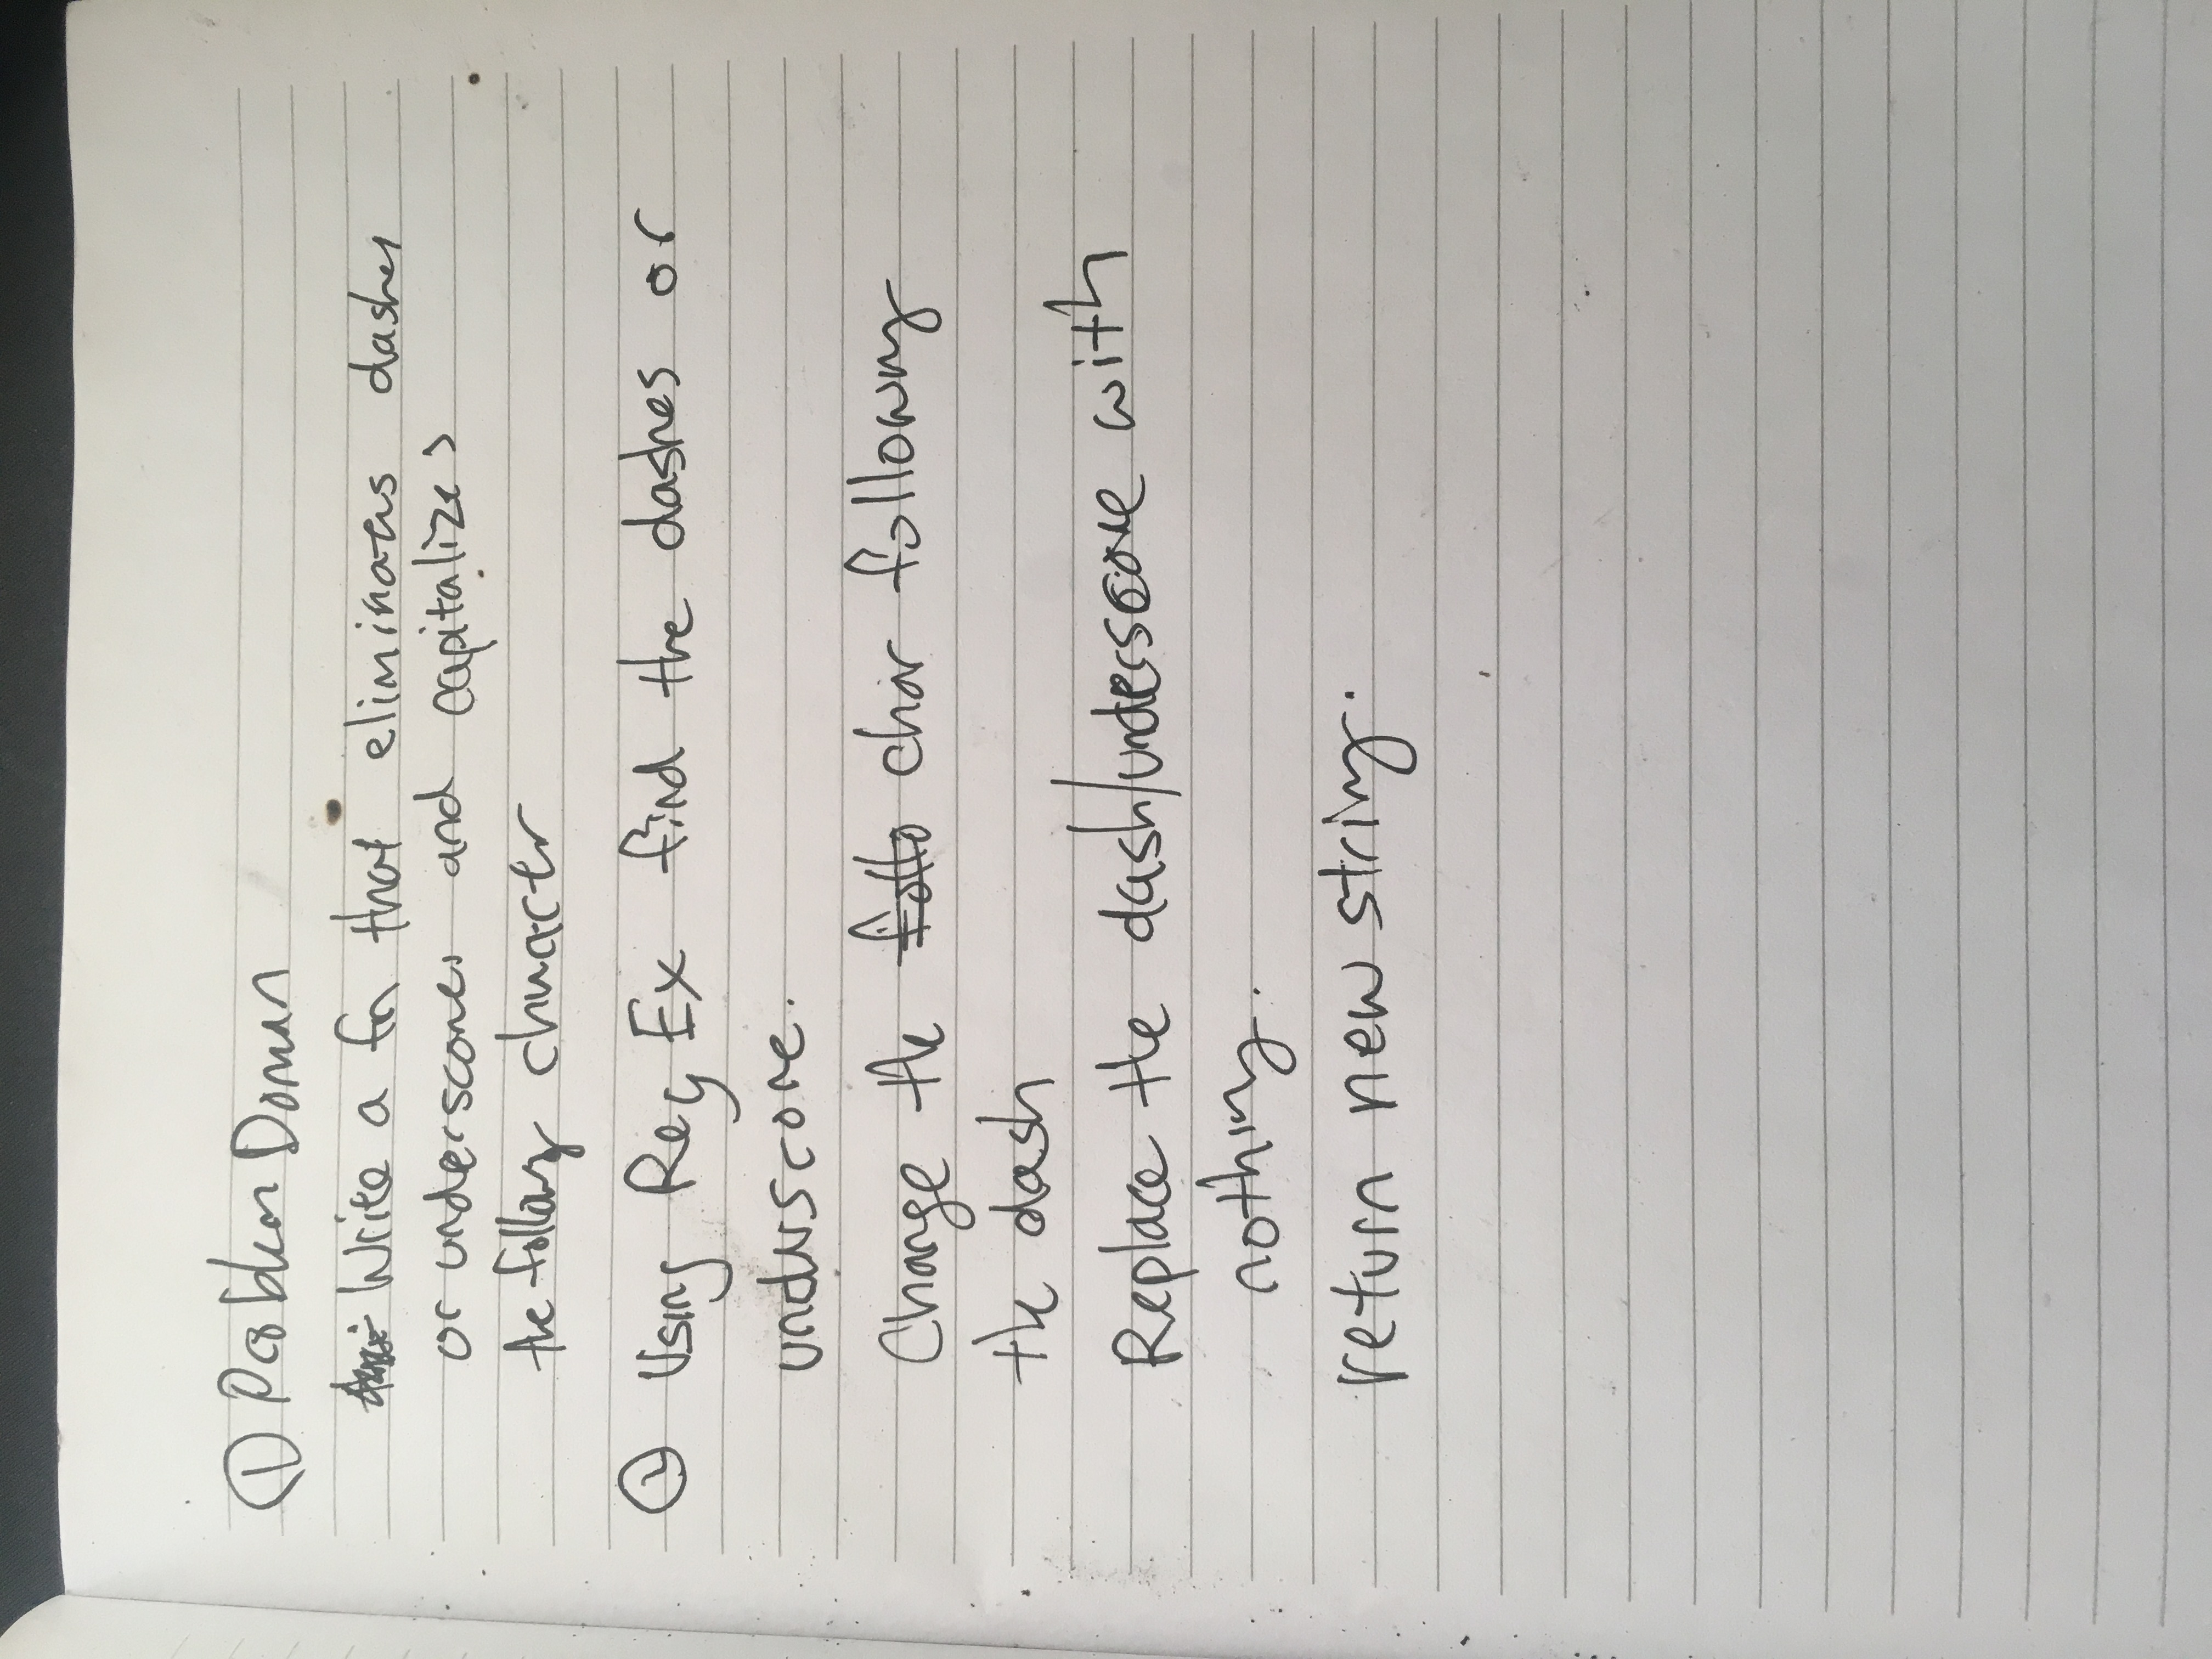 ① Problem Domain
Write a fn that eliminates dashes
or underscores and capitalizes
the following character
① Using Reg Ex find the dashes or
underscore.
Change the follo char following
the dash
Replace the dash/underscore with
nothing.
return new string.